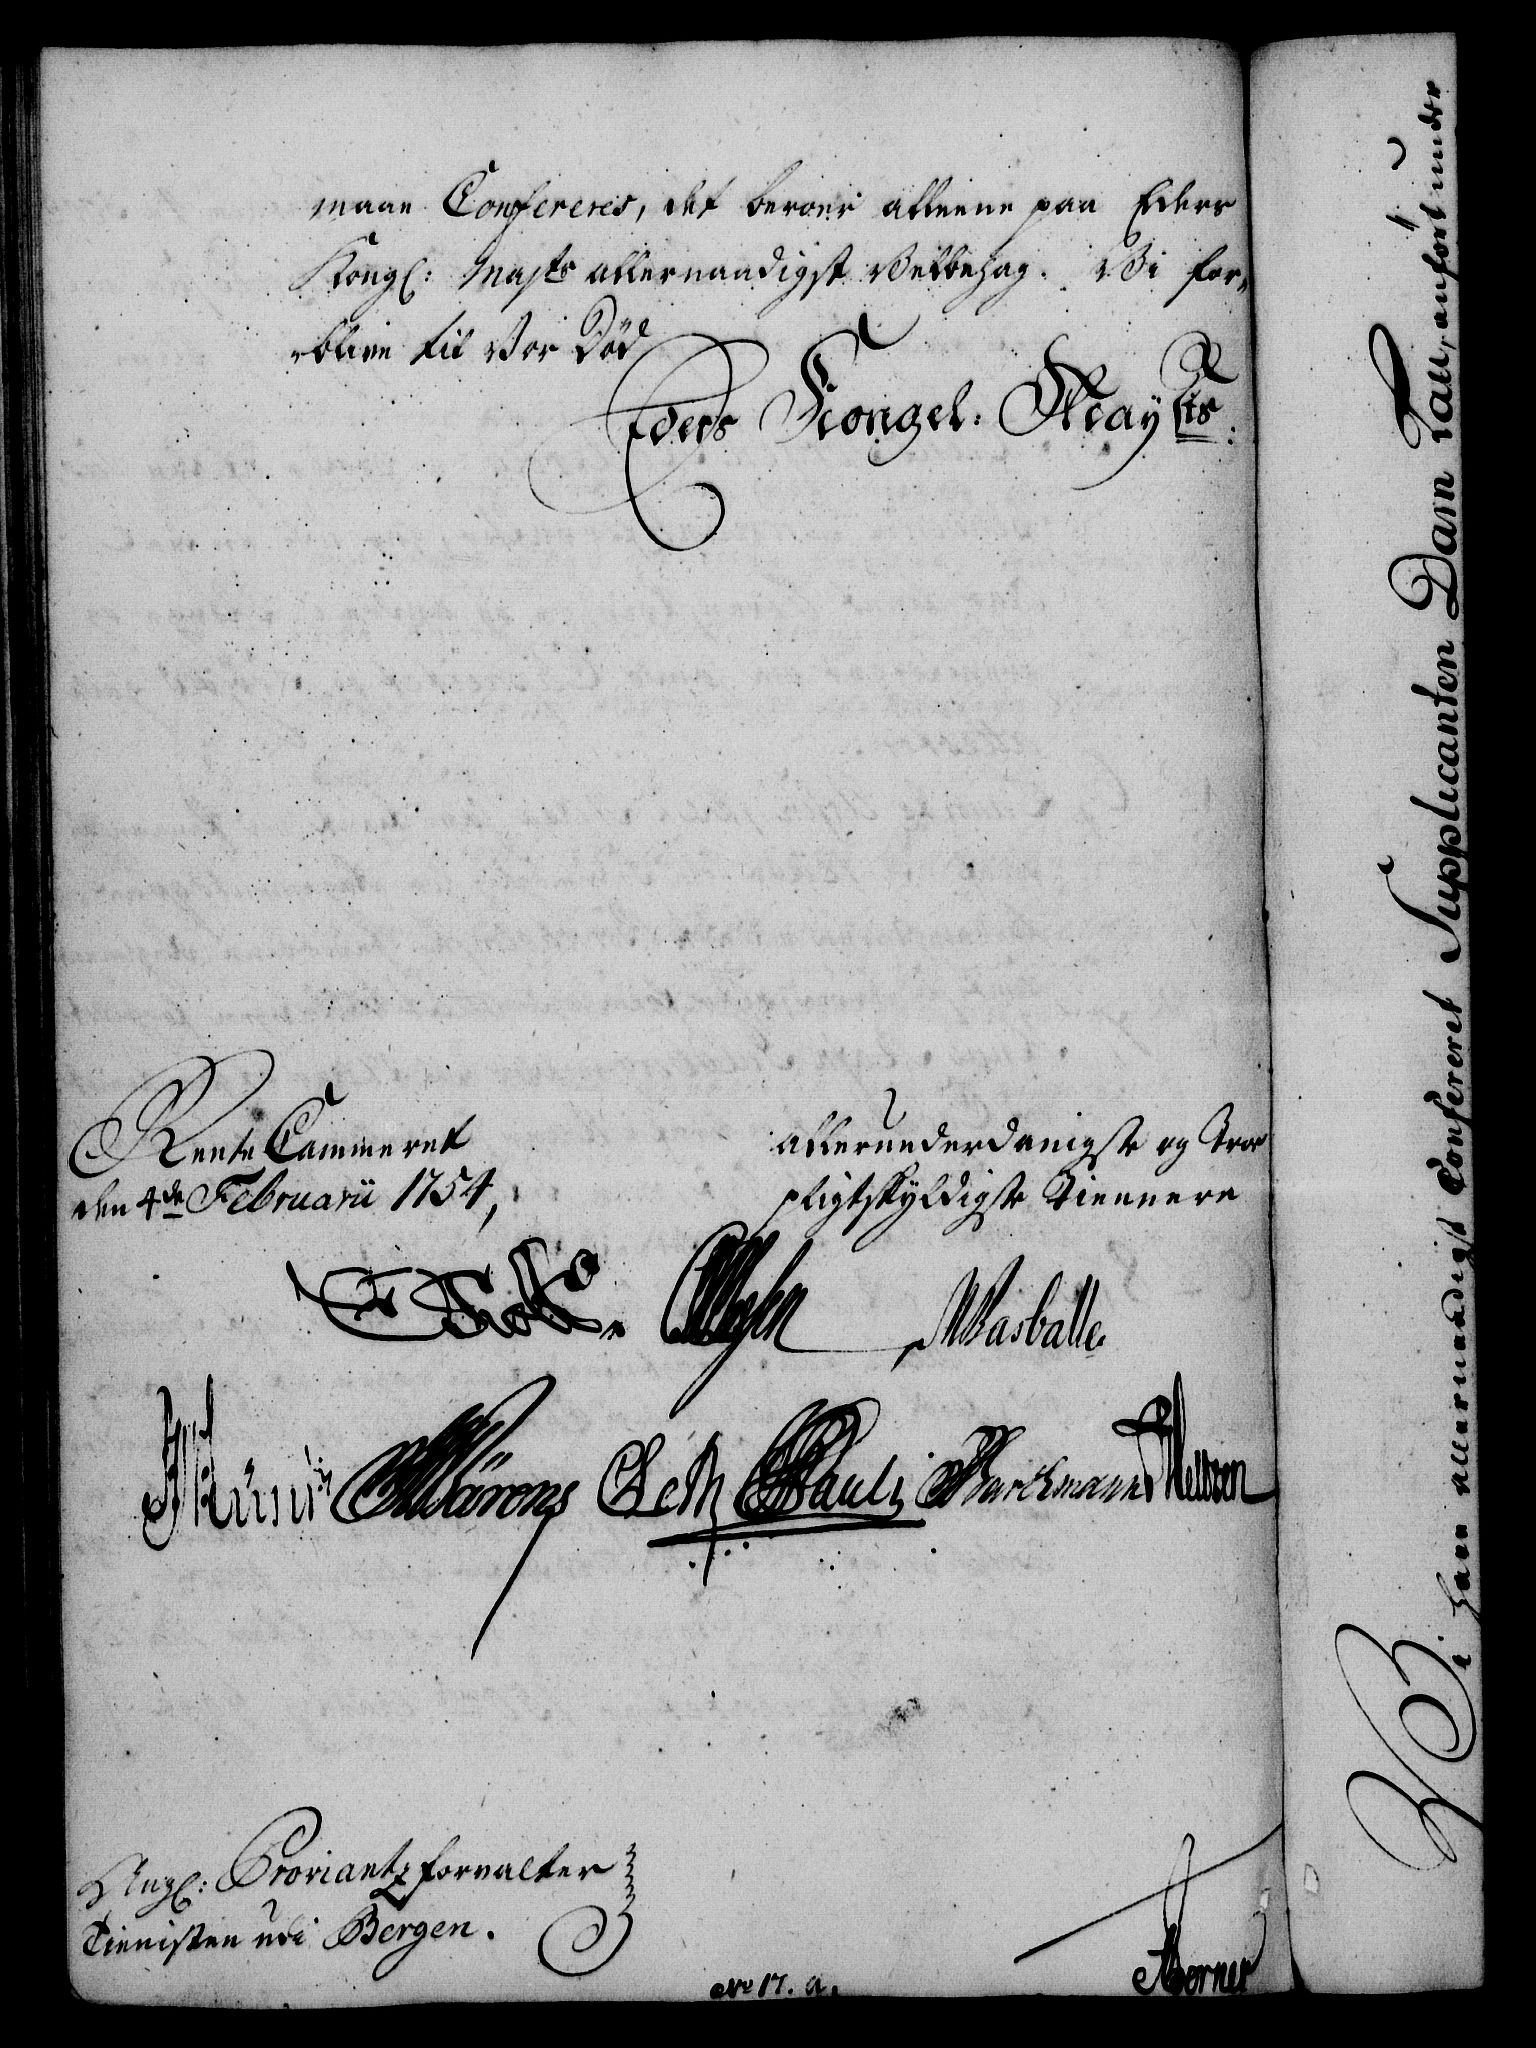 maae Confereres, det beroer alleene paa Eders
Kongl: Majts allernaadigst Velbehag. Vi for„
„blive til Vor Död
Eders Kongel: Mayts:
Rente Cammeret
den 4de Februarii 1754,
allerunderdanigste og Troe
pligtskyldigste Tiennere
Holst
Wasballe
Wärons Leth Pauli Barthmann
Angl: Proviantforvalter
Tienisten udi Bergen.
No 17. a.
Berner
Vi have allernaadigst Confereret Supplicanten Dam Lau, anfört under